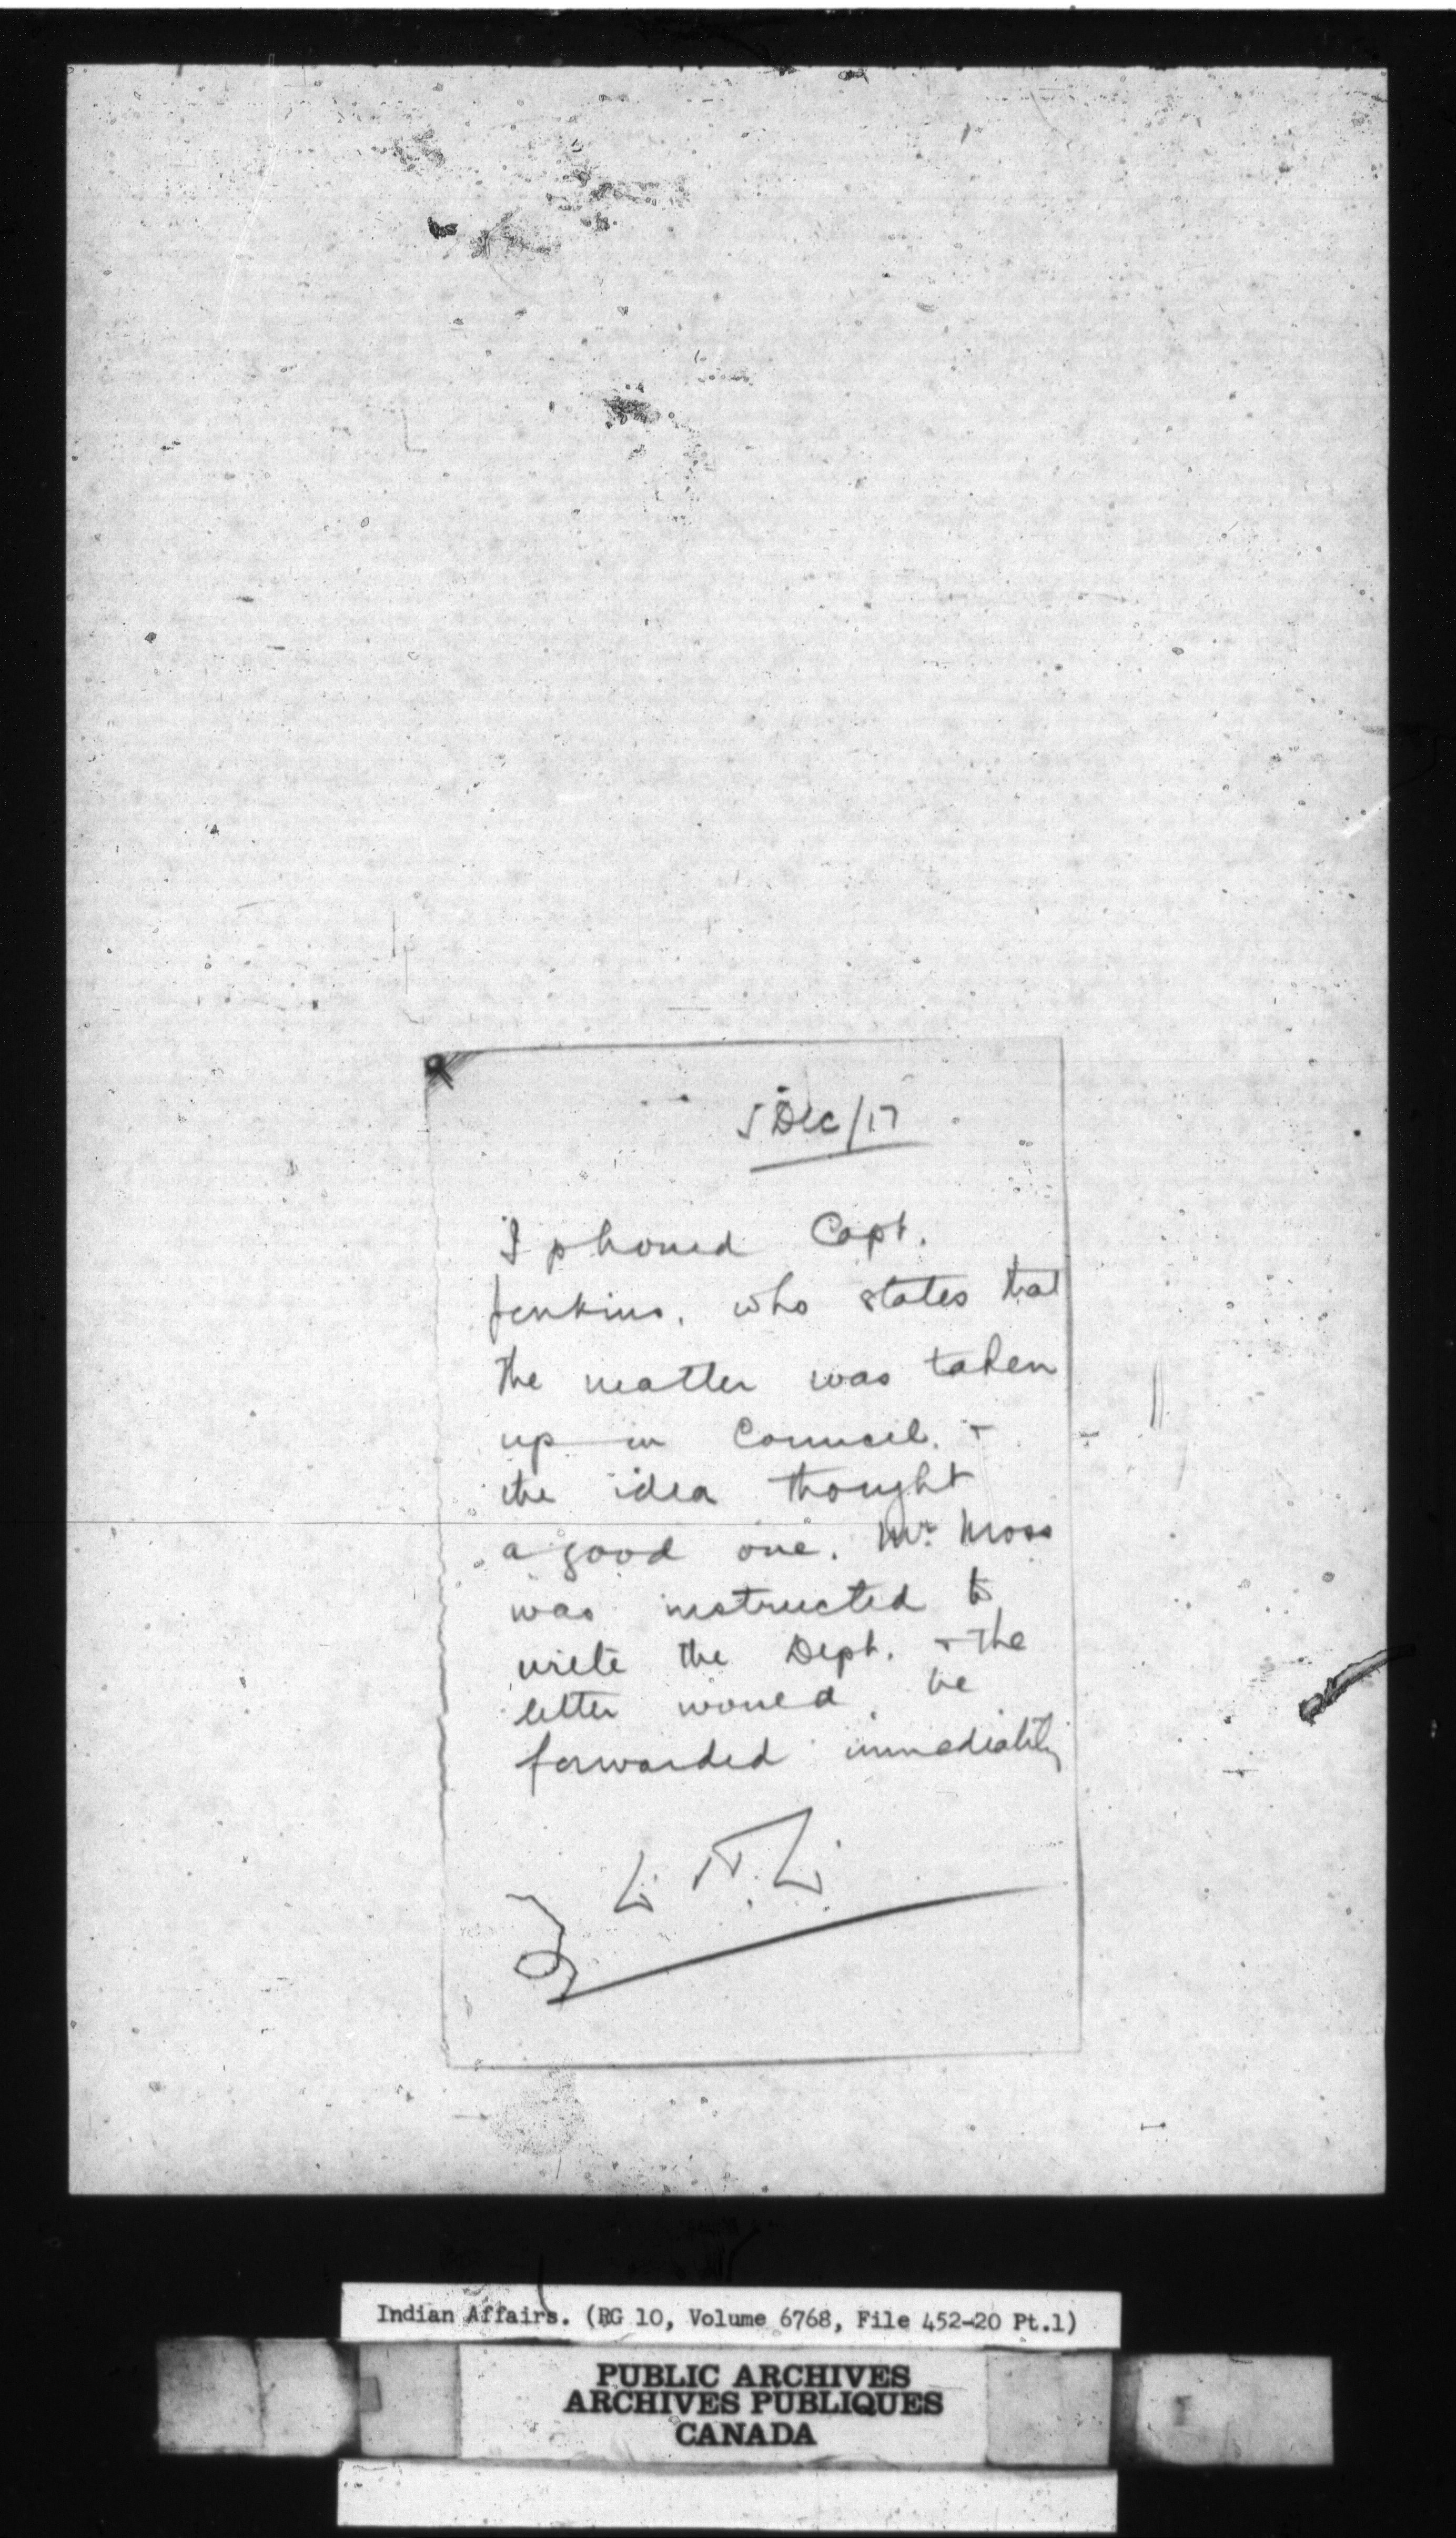 5 Dec/17
I phoned Capt.
Jenkins, who states that
the matter was taken
up in Council. +
the idea thought
a good one. Mr. Moss
was instructed to
write the Dept. + the
letter would be
forwarded immediately
Indian Affairs. (RG 10, Volume 6768, File 452-20 Pt.1)
PUBLIC ARCHIVES
ARCHIVES PUBLIQUES
CANADA